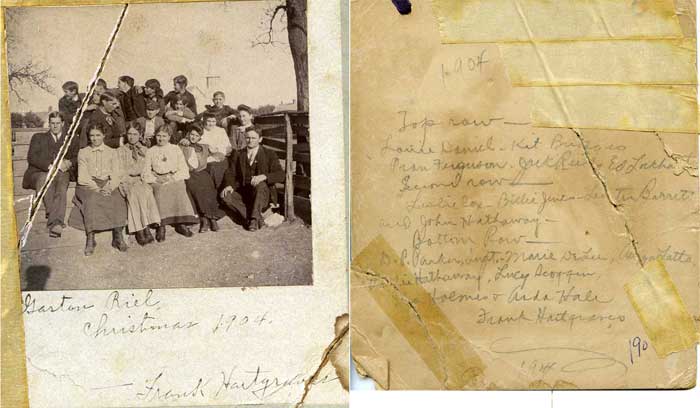 Gaston Riel,
Christmas 1904.
Frank Hartgraves
1904
Top row —
Louie Daniel - Kit Briggs
Fran Ferguson. Jack Reed, Ed
Second row —
Leslie Cox - Billie Jines - Lester Barrett
and John Hathaway —
Bottom Row —
D. P. Parker, supt. Marie DeLee,
Hathaway, Lucy Scoggin,
Holmes & Arda Hale
Frank Hartgraves
190
1904